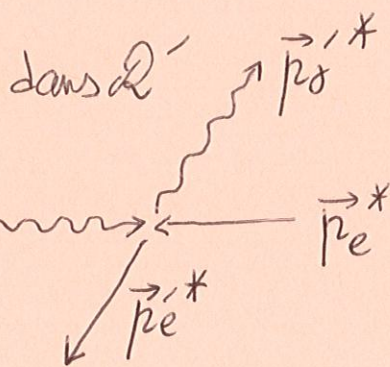 dans R'
p⃗γ'*
p⃗e*
p⃗e'*